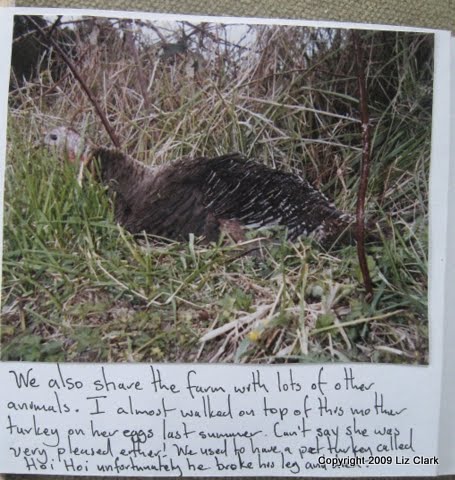 We also share the farm with lots of other
animals. I almost walked on top of this mother
turkey on her eggs last summer. Can't say she was
very pleased either! We used to have a pet turkey called
Hoi Hoi unfortunately he broke his leg and
Copyright 2009 Liz Clark